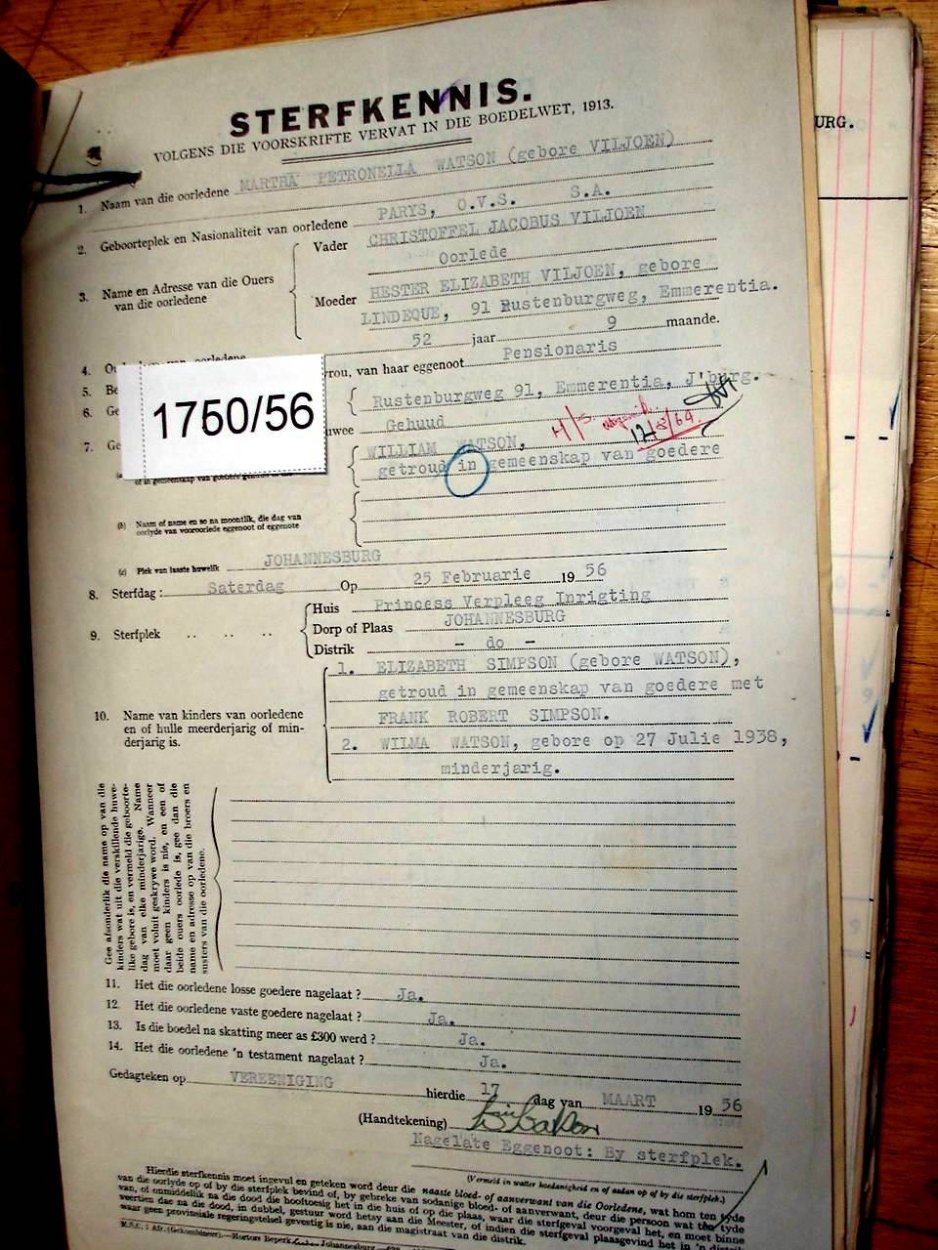 STERFKENNIS.
VOLGENS DIE VOORSKRIFTE VERVAT IN DIE BOEDELWET, 1913.
URG.
1. Naam van die oorledene MARTHA PETRONELLA WATSON (gebore VILJOEN)
2. Geboorteplek en Nasionaliteit van oorledene PARYS, O.V.S. S.A.
3. Name en Adresse van die Ouers van die oorledene
Vader CHRISTOFFEL JACOBUS VILJOEN
Oorlede
Moeder HESTER ELIZABETH VILJOEN, gebore
LINDEQUE, 91 Rustenburgweg, Emmerentia.
4. 52 jaar 9 maande.
5. Be rou, van haar eggenoot Pensionaris
6. Ge Rustenburgweg 91, Emmerentia, J'burg.
1750/56
7. Ge uwee Gehuud
H/S 12/8/64
WILLIAM WATSON,
getroud in gemeenskap van goedere
(b) Naam of name en so na moontlik, die dag van
oorlyde van vooroorlede eggenoot of eggenote
(c) Plek van laaste huwelik JOHANNESBURG
8. Sterfdag: Saterdag Op 25 Februarie 1956
9. Sterfplek .. .. ..
Huis Princess Verpleeg Inrigting
Dorp of Plaas JOHANNESBURG
Distrik - do -
10. Name van kinders van oorledene
en of hulle meerderjarig of min-
derjarig is.
1. ELIZABETH SIMPSON (gebore WATSON),
getroud in gemeenskap van goedere met
FRANK ROBERT SIMPSON.
2. WILMA WATSON, gebore op 27 Julie 1938,
minderjarig.
Gee afsonderlik die name op van die
kinders wat uit die verskillende huwe-
like gebore is, en vermeld die geboorte-
dag van elke minderjarige. Name
moet voluit geskrywe word. Wanneer
daar geen kinders is nie, en een of
beide ouers oorlede is, gee dan die
name en adresse op van die broers en
susters van die oorledene.
11. Het die oorledene losse goedere nagelaat? Ja.
12. Het die oorledene vaste goedere nagelaat? Ja.
13. Is die boedel na skatting meer as £300 werd? Ja.
14. Het die oorledene 'n testament nagelaat? Ja.
Gedagteken op VEREENIGING hierdie 17 dag van MAART 1956
(Handtekening)
Nagelate Eggenoot: By sterfplek.
(Vermeld in watter hoedanigheid en of aldan op of by die sterfplek.)
Hierdie sterfkennis moet ingevul en geteken word deur die naaste bloed- of aanverwant van die Oorledene, wat hom ten tyde
van die oorlyde op of by die sterfplek bevind of, by gebreke van sodanige bloed- of aanverwant, deur die persoon wat ten tyde
van, of onmiddelik na die dood die hooftoesig het in die huis of op die plaas, waar die sterfgeval voorgeval het, en moet binne
veertien dae na die dood, in dubbel, gestuur word hetsy aan die Meester, of indien die sterfgeval plaasgevind het in 'n
waar geen provinsiale regeringstelsel gevestig is nie, aan die magistraat van die distrik.